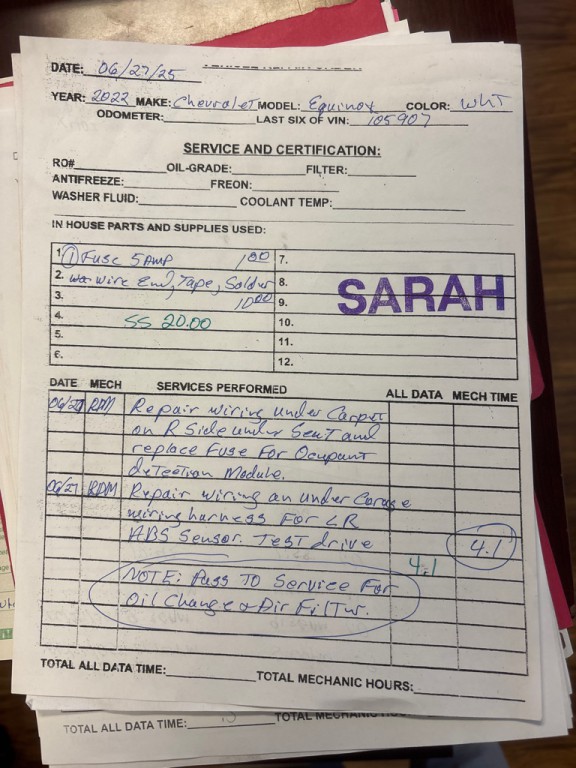 DATE: 06/27/25
YEAR: 2022 MAKE: Chevrolet MODEL: Equinox COLOR: WhT
ODOMETER: LAST SIX OF VIN: 105907
SERVICE AND CERTIFICATION:
RO# OIL-GRADE: FILTER:
ANTIFREEZE: FREON:
WASHER FLUID: COOLANT TEMP:
IN HOUSE PARTS AND SUPPLIES USED:
1. ① Fuse 5 Amp 1.00 7.
2. Wire End, Tape, Solder 8.
3. 10.00 9.
SARAH
4. SS 20.00 10.
5. 11.
6. 12.
DATE MECH SERVICES PERFORMED ALL DATA MECH TIME
06/27 RDM Repair wiring under Carpet
on R Side under Seat and
replace Fuse For Ocupant
detection Module.
06/27 RDM Repair wiring an under
wiring harness For LR
ABS Sensor. Test drive 4.1
4.1
NOTE: Pass To Service For
Oil Change & Air Filtur.
TOTAL ALL DATA TIME: TOTAL MECHANIC HOURS:
TOTAL ALL DATA TIME: